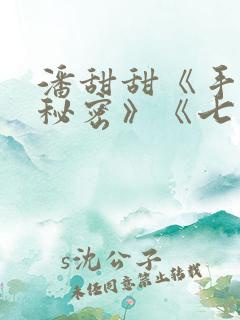 潘甜甜《手
秘密》《七
s沈公子
未经同意禁止转载